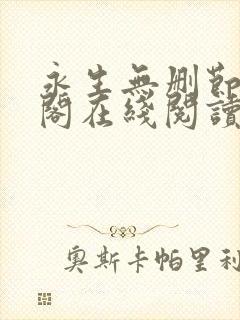 永生無刪節
閣在綫閱讀
奧斯卡帕里利